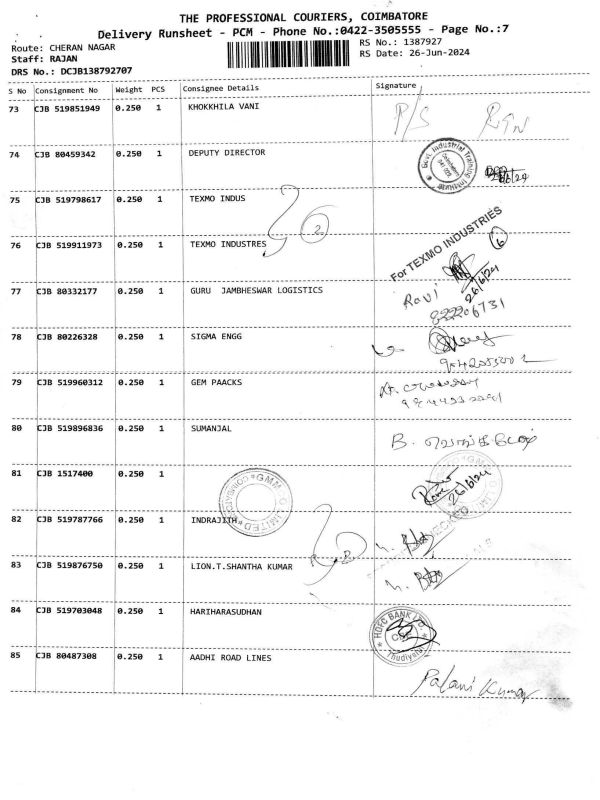 THE PROFESSIONAL COURIERS, COIMBATORE
Delivery Runsheet - PCM - Phone No.:0422-3505555 - Page No.:7
Route: CHERAN NAGAR
RS No.: 1387927
Staff: RAJAN
RS Date: 26-Jun-2024
DRS No.: DCJB138792707
S No Consignment No Weight PCS Consignee Details Signature
73 CJB 519851949 0.250 1 KHOKKHILA VANI
P/S
74 CJB 80459342 0.250 1 DEPUTY DIRECTOR
Govt. Industrial Training Institute
75 CJB 519798617 0.250 1 TEXMO INDUS
2
For TEXMO INDUSTRIES
6
76 CJB 519911973 0.250 1 TEXMO INDUSTRES
26/6/24
77 CJB 80332177 0.250 1 GURU JAMBHESWAR LOGISTICS
Ravi
78 CJB 80226328 0.250 1 SIGMA ENGG
79 CJB 519960312 0.250 1 GEM PAACKS
80 CJB 519896836 0.250 1 SUMANJAL
B.
81 CJB 1517400 0.250 1
26/6/24
82 CJB 519787766 0.250 1 INDRAJITH
83 CJB 519876750 0.250 1 LION.T.SHANTHA KUMAR
84 CJB 519703048 0.250 1 HARIHARASUDHAN
HDFC BANK LTD.
Thudiyalur
85 CJB 80487308 0.250 1 AADHI ROAD LINES
Palani Kumar